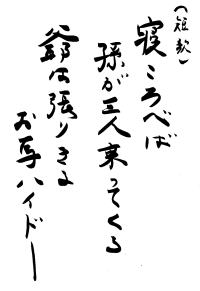 (短歌)
寝ころべば
孫が三人来ってくる
爺は張りきる
お馬ハイドー